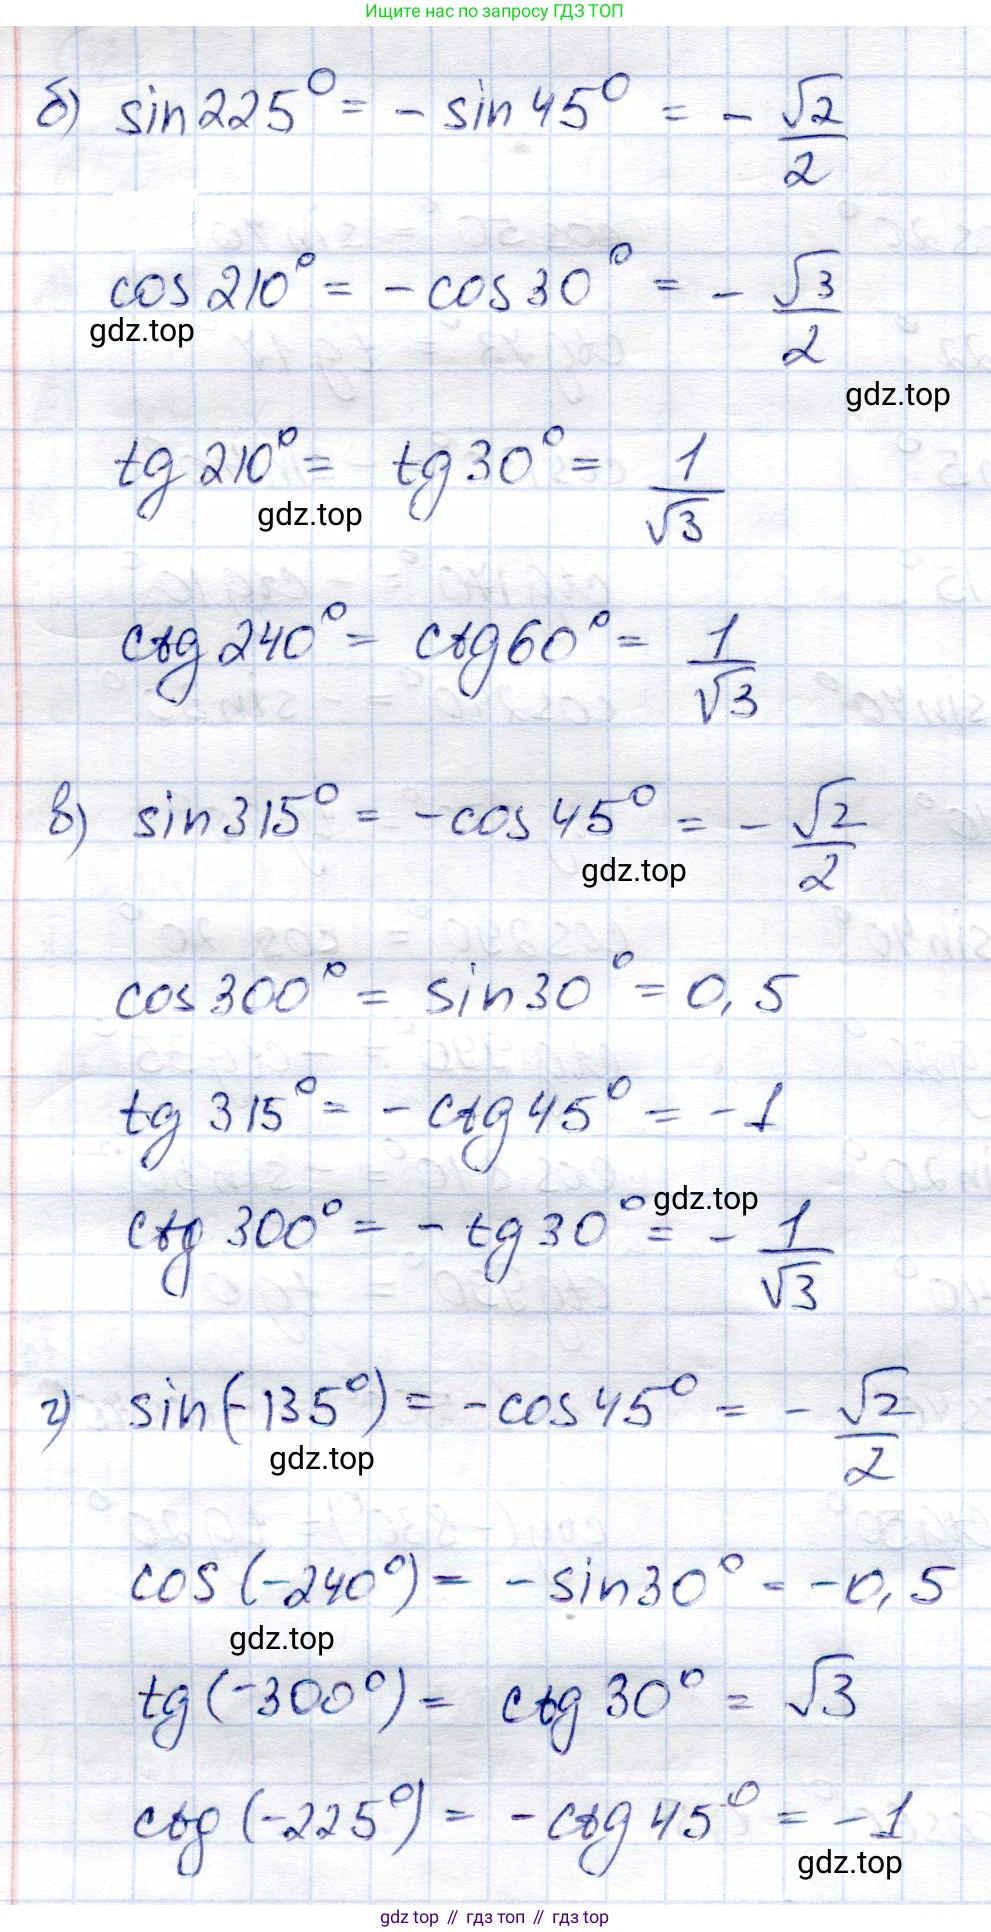 Ищите нас по запросу ГДЗ ТОП
б) sin 225° = - sin 45° = - √2/2
cos 210° = - cos 30° = - √3/2
gdz.top
gdz.top
tg 210° = tg 30° = 1/√3
gdz.top
ctg 240° = ctg 60° = 1/√3
в) sin 315° = - cos 45° = - √2/2
gdz.top
cos 300° = sin 30° = 0,5
tg 315° = - ctg 45° = -1
gdz.top
ctg 300° = - tg 30° = - 1/√3
г) sin(-135°) = - cos 45° = - √2/2
gdz.top
cos (-240°) = - sin 30° = -0,5
gdz.top
tg (-300°) = ctg 30° = √3
ctg (-225°) = - ctg 45° = -1
gdz.top
gdz top // гдз топ // gdz top